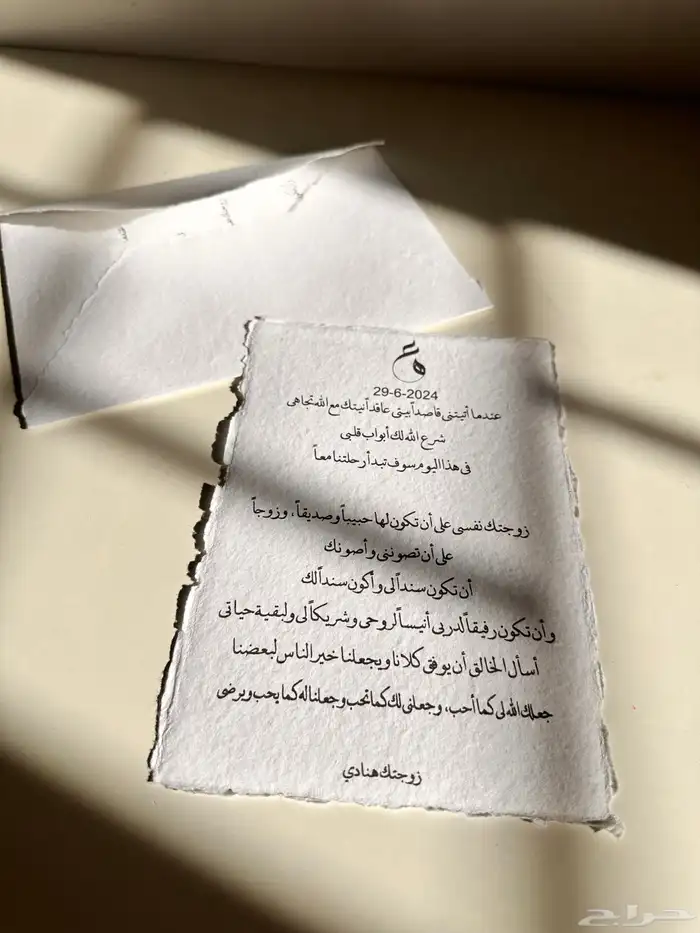 29-6-2024
عندما أتيتني قاصداً بيتي عاقداً نيتك مع الله تجاهي
شرع الله لك أبواب قلبي
في هذا اليوم سوف تبدأ رحلتنا معاً
زوجتك نفسي على أن تكون لها حبيباً وصديقاً، وزوجاً
على أن تصونني وأصونك
أن تكون سنداً لي وأكون سنداً لك
وأن تكون رفيقاً لدربي أنيساً لروحي وشريكاً لي ولبقية حياتي
أسأل الخالق أن يوفق كلانا ويجعلنا خير الناس لبعضنا
جعلك الله لي كما أحب، وجعلني لك كما تحب وجعلنا له كما يحب ويرضى
زوجتك هنادي
حراج